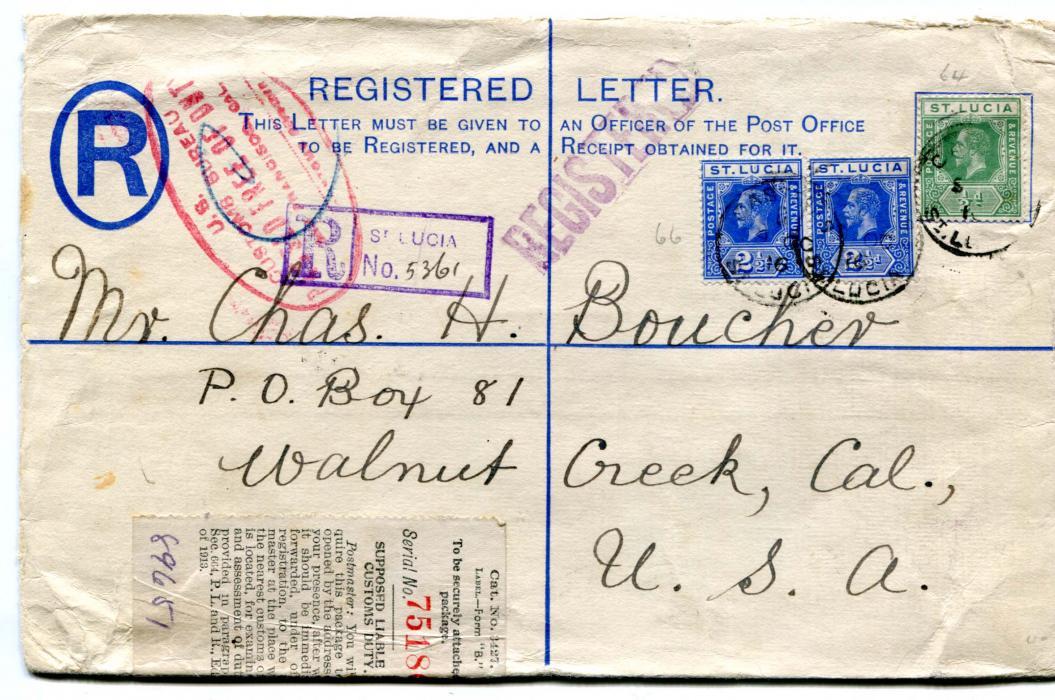 REGISTERED LETTER.
THIS LETTER MUST BE GIVEN TO AN OFFICER OF THE POST OFFICE
TO BE REGISTERED, AND A RECEIPT OBTAINED FOR IT.
R
64
ST. LUCIA
POSTAGE & REVENUE
½d
ST. LUCIA
POSTAGE & REVENUE
2½d
ST. LUCIA
POSTAGE & REVENUE
66
REGISTERED
U.S. CUSTOMS BUREAU
FREE OF
CAL.
R ST LUCIA
No. 5361
Mr. Chas. H. Boucher
P. O. Box 81
Walnut Creek, Cal.,
U. S. A.
Cat. No.
LABEL—Form "B."
To be securely attache
package.
Serial No. 7518
SUPPOSED LIABLE
CUSTOMS DUTY.
Postmaster: You wi
quire this package t
opened by the addres
your presence, after w
it should be immedi
forwarded, under of
registration, to the
master at the place w
the nearest customs o
is located, for examin
and assessment of dut
provided in paragrap
Sec. 604, P. L. and R., Ed
of 1913.